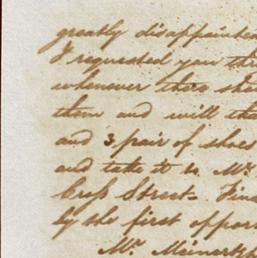 greatly disappointed
I requested you thr
whenever there sho
them and will tha
and 3 pair of shoes
and take it to Mr.
Cross Street. Fin
by the first oppor
Mr. Meinertzh